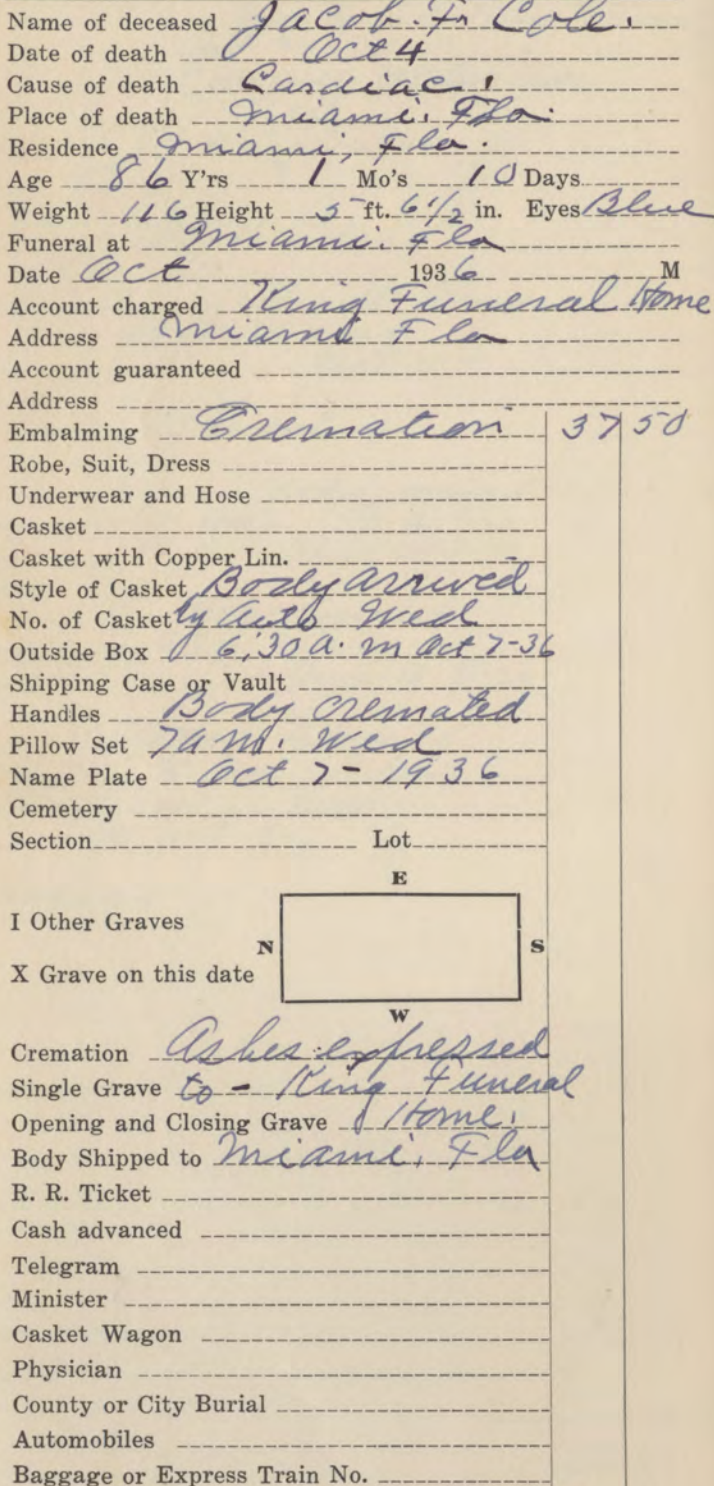 Name of deceased Jacob. Fr Cole.
Date of death Oct 4
Cause of death Cardiac.
Place of death Miami. Fla.
Residence Miami, Fla.
Age 86 Y'rs 1 Mo's 10 Days
Weight 116 Height 5 ft. 6 1/2 in. Eyes Blue
Funeral at Miami. Fla
Date Oct 1936 M
Account charged King Funeral Home
Address Miami Fla
Account guaranteed
Address
Embalming Cremation 37 50
Robe, Suit, Dress
Underwear and Hose
Casket
Casket with Copper Lin.
Style of Casket Body arrived
No. of Casket by Auto Wed
Outside Box 6:30 a.m Oct 7-36
Shipping Case or Vault
Handles Body cremated
Pillow Set 7 a m. Wed
Name Plate Oct 7-1936
Cemetery
Section Lot
E
I Other Graves
N S
X Grave on this date
W
Cremation Ashes expressed
Single Grave to - King Funeral
Opening and Closing Grave Home.
Body Shipped to Miami. Fla
R. R. Ticket
Cash advanced
Telegram
Minister
Casket Wagon
Physician
County or City Burial
Automobiles
Baggage or Express Train No.